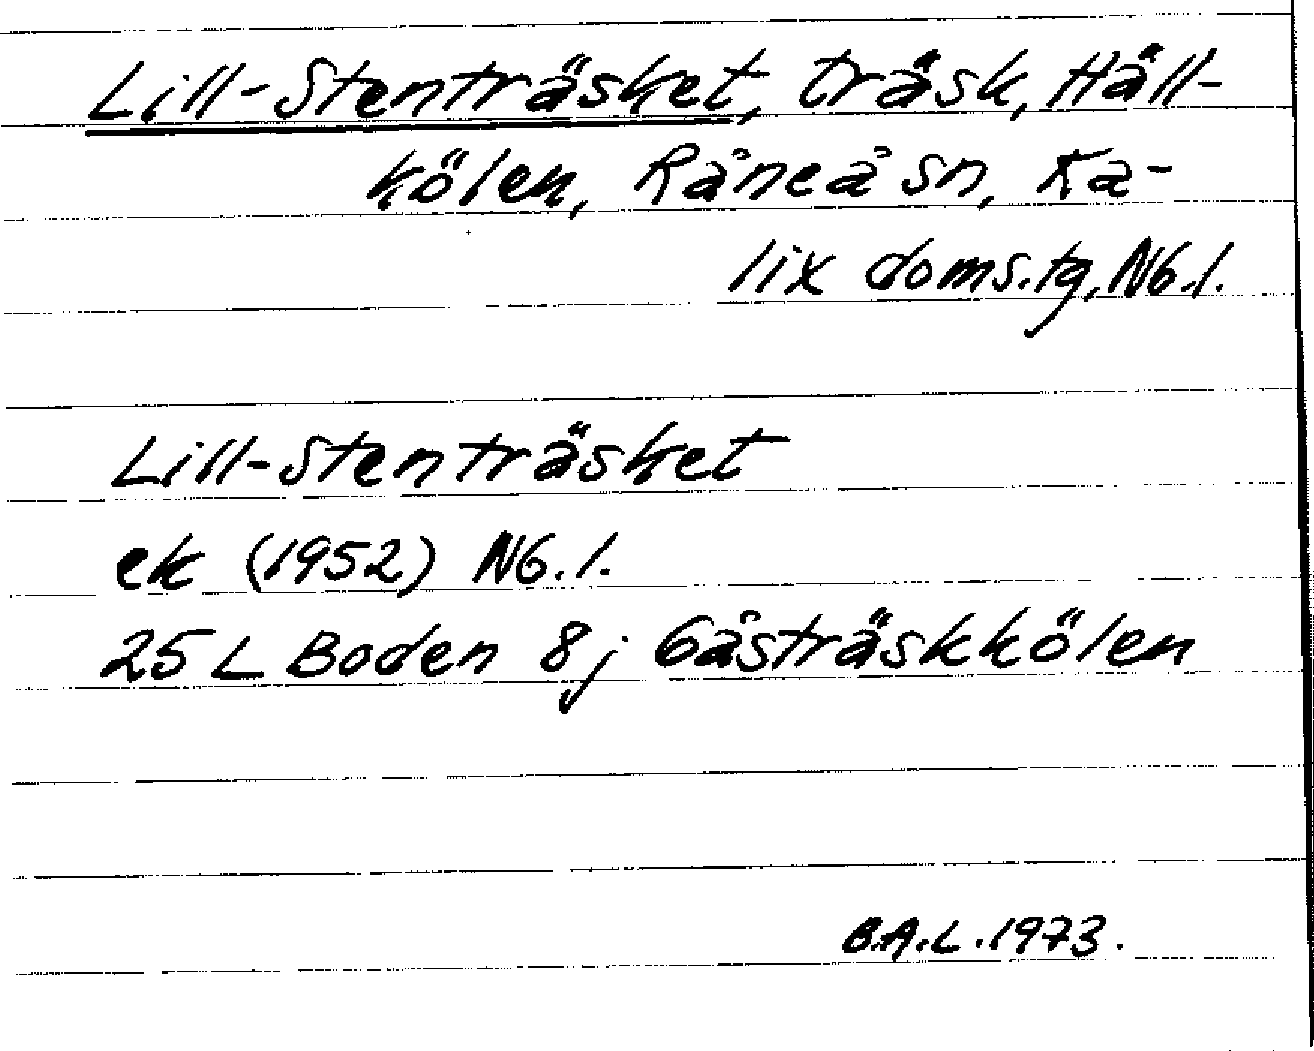 Lill-Stenträsket, träsk, Häll-
kölen, Råneå sn, Ka-
lix doms.tg, Nb.l.
Lill-Stenträsket
ek (1952) Nb.l.
25 L Boden 8j Gåsträskkölen
B.A.L. 1973.